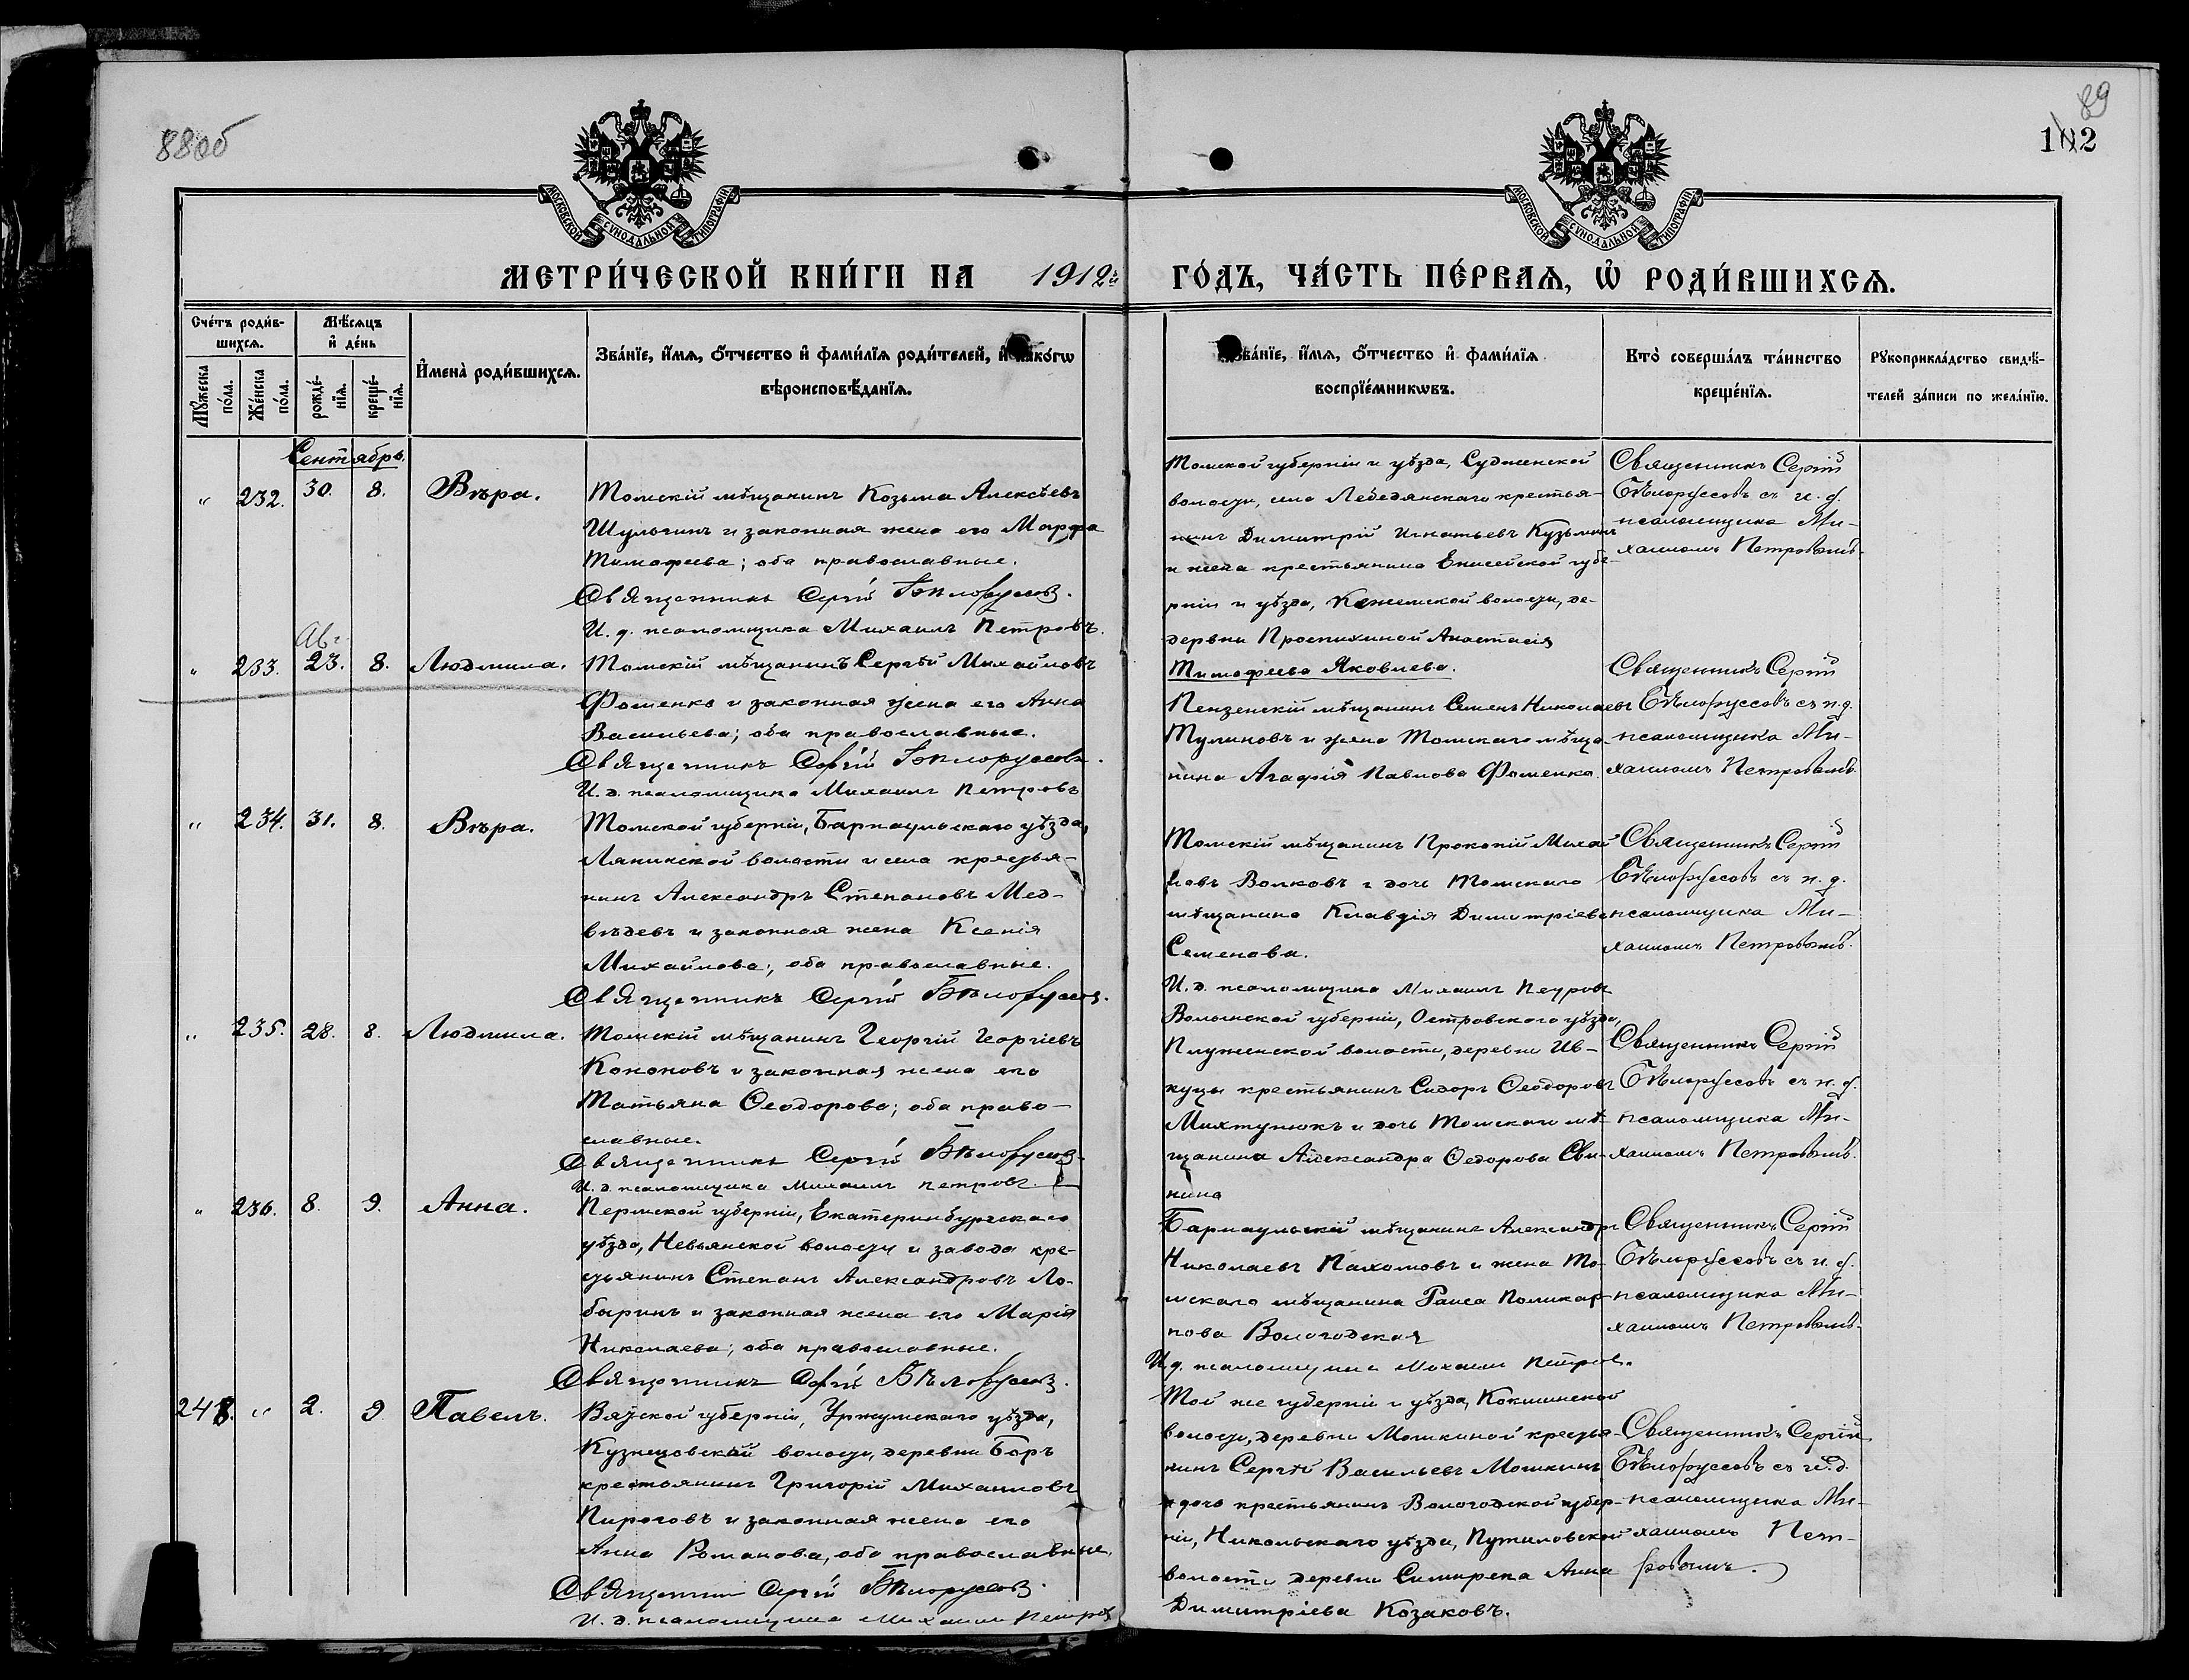 88об
89
102
МОСКОВСКОЙ СѴНОДАЛЬНОЙ ТИПОГРАФІИ
МОСКОВСКОЙ СѴНОДАЛЬНОЙ ТИПОГРАФІИ
МЕТРИ́ЧЕСКОЙ КНИ́ГИ НА 1912й ГО́ДЪ, ЧА́СТЬ ПЕ́РВАѦ, Ѡ҆ РОДИ́ВШИХСѦ.
Сче́тъ роди́в-
шихсѧ.
Мꙋ́жеска
по́ла.
Же́нска
по́ла.
Мѣ́сѧцъ
и҆ де́нь
рожде́-
нїѧ.
креще́-
нїѧ.
И҆мена̀ роди́вшихсѧ.
Зва́нїе, и҆́мѧ, ѻ҆́тчество и҆ фами́лїѧ роди́телей, и҆ како́гѡ
вѣроисповѣ́данїѧ.
Зва́нїе, и҆́мѧ, ѻ҆́тчество и҆ фами́лїѧ
воспрїе́мникѡвъ.
Кто̀ соверша́лъ та́инство
креще́нїѧ.
Рꙋкоприкла́дство свидѣ́-
телей за́писи по жела́нїю.
Сентябрь.
" 232. 30. 8. Вѣра.
Томскій мѣщанинъ Козьма Алексѣевъ
Шульгинъ и законная жена его Марфа
Тимофеева; оба православные.
Священникъ Сергій Бѣлорусовъ.
И. д. псаломщика Михаилъ Петровъ.
Томской губерніи и уѣзда, Судженской
волости, села Лебедянскаго крестья-
нинъ Димитрій Игнатьевъ Кузьминъ
и жена крестьянина Енисейской губе-
рніи и уѣзда, Кежемской волости, де-
деревни Проспихиной Анастасія
Тимофеева Яковлева.
Священникъ Сергій
Бѣлоруссовъ съ и. д.
псаломщика Ми-
хаиломъ Петровымъ.
Авг.
" 233. 23. 8. Людмила.
Томскій мѣщанинъ Сергѣй Михайловъ
Фоменко и законная жена его Анна
Васильева; оба православные.
Священникъ Сергій Бѣлорусовъ.
И. д. псаломщика Михаилъ Петровъ
Пензенскій мѣщанинъ Семенъ Николаевъ
Тулиновъ и жена Томскаго мѣща-
нина Агафія Павлова Фоменко.
Священникъ Сергій
Бѣлоруссовъ съ и. д.
псаломщика Ми-
хаиломъ Петровымъ.
" 234. 31. 8. Вѣра.
Томской губерніи, Барнаульскаго уѣзда,
Лянинской волости и села крестья-
нинъ Александръ Степановъ Мед-
вѣдевъ и законная жена Ксенія
Михайлова; оба православные.
Священникъ Сергій Бѣлорусовъ.
Томскій мѣщанинъ Прокопій Михай
ловъ Волковъ и дочь Томскаго
мѣщанина Клавдія Димитріева
Семенова.
И. д. псаломщика Михаилъ Петровъ
Священникъ Сергій
Бѣлоруссовъ съ и. д.
псаломщика Ми-
хаиломъ Петровымъ.
" 235. 28. 8. Людмила.
Томскій мѣщанинъ Георгій Георгіевъ
Кононовъ и законная жена его
Татьяна Ѳеодорова; оба право-
славные.
Священникъ Сергій Бѣлорусовъ.
И. д. псаломщика Михаилъ Петровъ.
Волынской губерніи, Островскаго уѣзда,
Плуженской волости, деревни Ив-
куцы крестьянинъ Сидоръ Ѳеодоровъ
Михтунюкъ и дочь Томскаго мѣ-
щанина Александра Ѳедорова Сви-
нина
Священникъ Сергій
Бѣлоруссовъ съ и. д.
псаломщика Ми-
хаиломъ Петровымъ.
" 236. 8. 9. Анна.
Пермской губерніи, Екатеринбургскаго
уѣзда, Невьянской волости и завода кре-
стьянинъ Степанъ Александровъ Ло-
быринъ и законная жена его Марія
Николаева; оба православные.
Священникъ Сергій Бѣлорусовъ.
Барнаульскій мѣщанинъ Александръ
Николаевъ Пахомовъ и жена То-
мскаго мѣщанина Раиса Поликар-
пова Вологодская
И. д. псаломщика Михаилъ Петровъ.
Священникъ Сергій
Бѣлоруссовъ съ и. д.
псаломщика Ми-
хаиломъ Петровымъ.
248. " 2. 9. Павелъ.
Вятской губерніи, Уржумскаго уѣзда,
Кузнецовской волости, деревни Боръ
крестьянинъ Григорій Михаиловъ
Пироговъ и законная жена его
Анна Романова, оба православные.
Священникъ Сергій Бѣлорусовъ.
И. д. псаломщика Михаилъ Петровъ
Той же губерніи и уѣзда, Кокшинской
волости, деревни Мошкиной крестья-
нинъ Сергѣй Васильевъ Мошкинъ
и дочь крестьянинъ Вологодской губер-
ніи, Никольскаго уѣзда, Путиловской
волости деревни Симирека Анна
Димитріева Козаковъ.
Священникъ Сергій
Бѣлоруссовъ съ и. д.
псаломщика Ми-
хаиломъ Пет-
ровымъ.